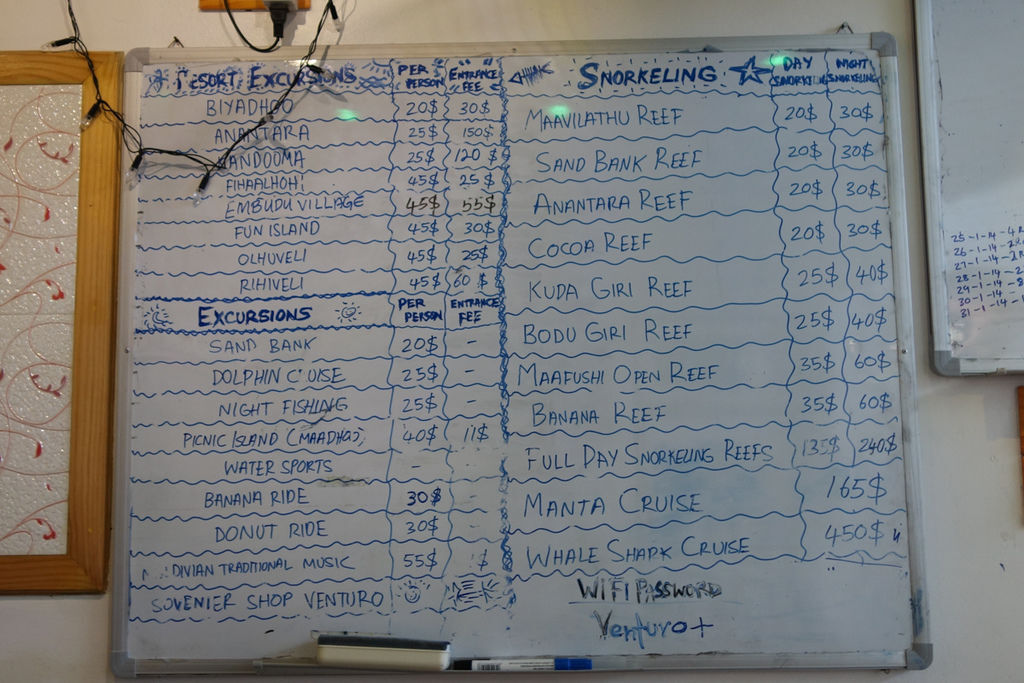 RESORT EXCURSIONS PER PERSON ENTRANCE FEE
BIYADHOO 20$ 30$
ANANTARA 25$ 150$
KANDOOMA 25$ 120$
FIHAALHOHI 45$ 25$
EMBUDU VILLAGE 45$ 55$
FUN ISLAND 45$ 30$
OLHUVELI 45$ 25$
RIHIVELI 45$ 60$
EXCURSIONS PER PERSON ENTRANCE FEE
SAND BANK 20$ -
DOLPHIN C UISE 25$ -
NIGHT FISHING 25$ -
PICNIC ISLAND (MAADHOO) 40$ 11$
WATER SPORTS - -
BANANA RIDE 30$ -
DONUT RIDE 30$ -
DIVIAN TRADITIONAL MUSIC 55$
SOVENIER SHOP VENTURO
SNORKELING DAY SNORKELING NIGHT SNORKELING
MAAVILATHU REEF 20$ 30$
SAND BANK REEF 20$ 30$
ANANTARA REEF 20$ 30$
COCOA REEF 20$ 30$
KUDA GIRI REEF 25$ 40$
BODU GIRI REEF 25$ 40$
MAAFUSHI OPEN REEF 35$ 60$
BANANA REEF 35$ 60$
FULL DAY SNORKELING REEFS 135$ 240$
MANTA CRUISE 165$
WHALE SHARK CRUISE 450$
WIFI PASSWORD
Venturo+
25-1-14-4
26-1-14-
27-1-14-
28-1-14-2
29-1-14-8
30-1-14-
31-1-14-